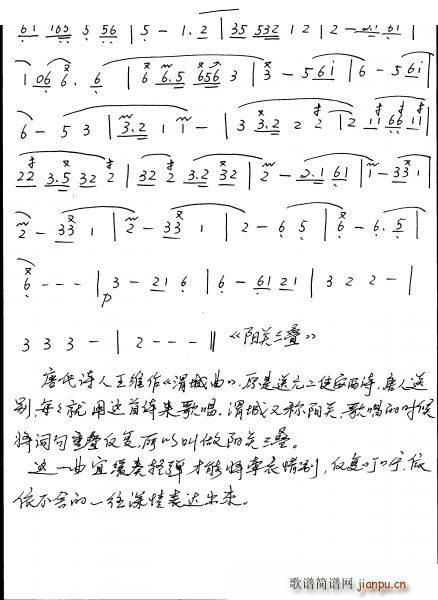 61 165 5 56 | 5 - 1. 2 | 35 532 12 | 2 - 2.1 61 |
1 06 6. 6 | 6 6.5 656 3 | 3 - 5 61 | 6 - 5 61 |
6 - 5 3 | 3.2 1 1 - | 3 3.2 2 2 | 2 11 66 11 |
22 3.5 32 2 | 32 2 3.2 32 | 2 - 2.1 61 | 1 - 33 1 |
2 - 33 1 | 2 - 33 1 | 2 - 6 5 | 6 - 6. 5 |
6 - - - | 3 - 21 6 | 6 - 61 21 | 3 2 2 - |
p
3 3 3 - | 2 - - - ‖ 《阳关三叠》
唐代诗人王维作《渭城曲》,原是送元二使安西诗,唐人送
别,每每就用这首诗来歌唱.渭城又称阳关,歌唱的时候
将词句重叠反复,所以叫做阳关三叠。
这一曲宜缓奏轻弹才能将牵衣惜别,反复叮咛,依
依不舍的一往深情表达出来。
歌谱简谱网
jianpu.cn